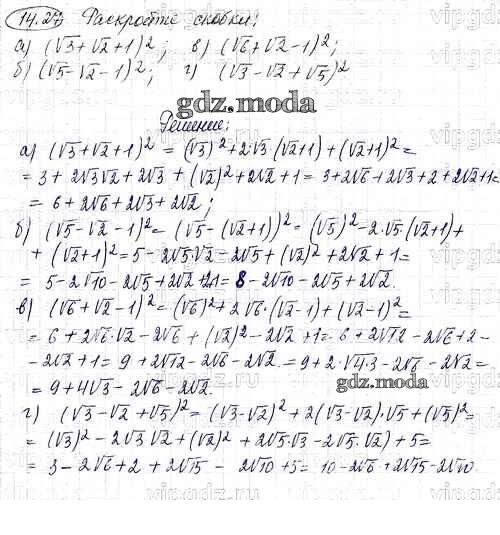 14.27 Раскройте скобки:
а) (√3+√2+1)²; в) (√6+√2-1)²;
б) (√5-√2-1)²; г) (√3-√2+√5)²
gdz.moda
Решение:
а) (√3+√2+1)² = (√3)²+2√3·(√2+1)+(√2+1)²=
= 3+2√3√2+2√3+(√2)²+2√2+1=3+2√6+2√3+2+2√2+1=
= 6+2√6+2√3+2√2;
б) (√5-√2-1)²=(√5-(√2+1))²=(√5)²-2·√5·(√2+1)+
+(√2+1)²=5-2√5·√2-2√5+(√2)²+2√2+1=
= 5-2√10-2√5+2√2+2+1=8-2√10-2√5+2√2.
в) (√6+√2-1)²=(√6)²+2√6·(√2-1)+(√2-1)²=
= 6+2√6·√2-2√6+(√2)²-2√2+1=6+2√12-2√6+2-
-2√2+1=9+2√12-2√6-2√2=9+2·√4·3-2√6-2√2=
= 9+4√3-2√6-2√2.
gdz.moda
г) (√3-√2+√5)²=(√3-√2)²+2(√3-√2)·√5+(√5)²=
= (√3)²-2√3√2+(√2)²+2√5·√3-2√5·√2)+5=
= 3-2√6+2+2√15-2√10+5=10-2√6+2√15-2√10.